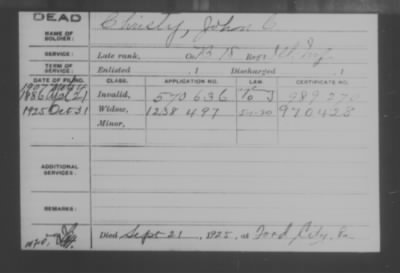 DEAD
NAME OF SOLDIER: Christy, John C
SERVICE: Late rank, Co. Reg't Inf.
TERM OF SERVICE: Enlisted , 1 Discharged , 1
DATE OF FILING. CLASS. APPLICATION NO. LAW. CERTIFICATE NO.
1886 Apl 21 Invalid, 570 636
1925 Oct 31 Widow, 1238 497 970428
Minor,
ADDITIONAL SERVICES:
REMARKS:
Died Sept 21, 1925, at Ford City, Pa